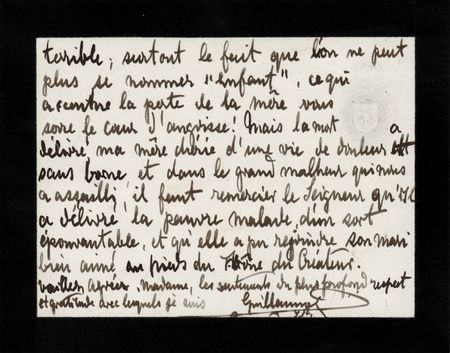 terrible; surtout le fait que l'on ne peut
plus se nommer "enfant", ce qui
accentue la perte de la mère vous
serre le cœur d'angoisse! Mais la mort a
délivré ma mère chérie d'une vie de douleur
sans borne et dans le grand malheur qui nous
a assailli, il faut remercier le Seigneur qu'Il
a délivré la pauvre malade d'un sort
épouvantable, et qu'elle a pu rejoindre son mari
bien aimé au pieds du Trône du Créateur.
Veuillez agréer, Madame, les sentiments du plus profond respect
et gratitude avec lesquels je suis
Guillaume